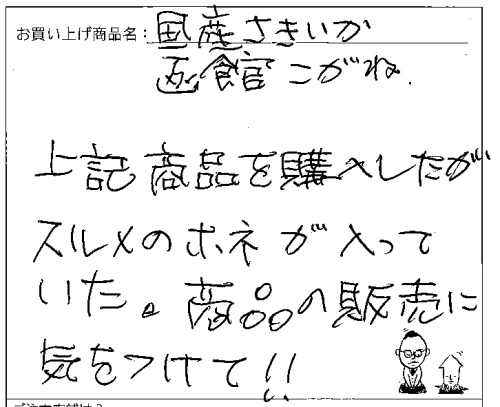 お買い上げ商品名：国産さきいか
函館こがね.
上記商品を購入したが
スルメのホネが入って
いた。商品の販売に
気をつけて!!